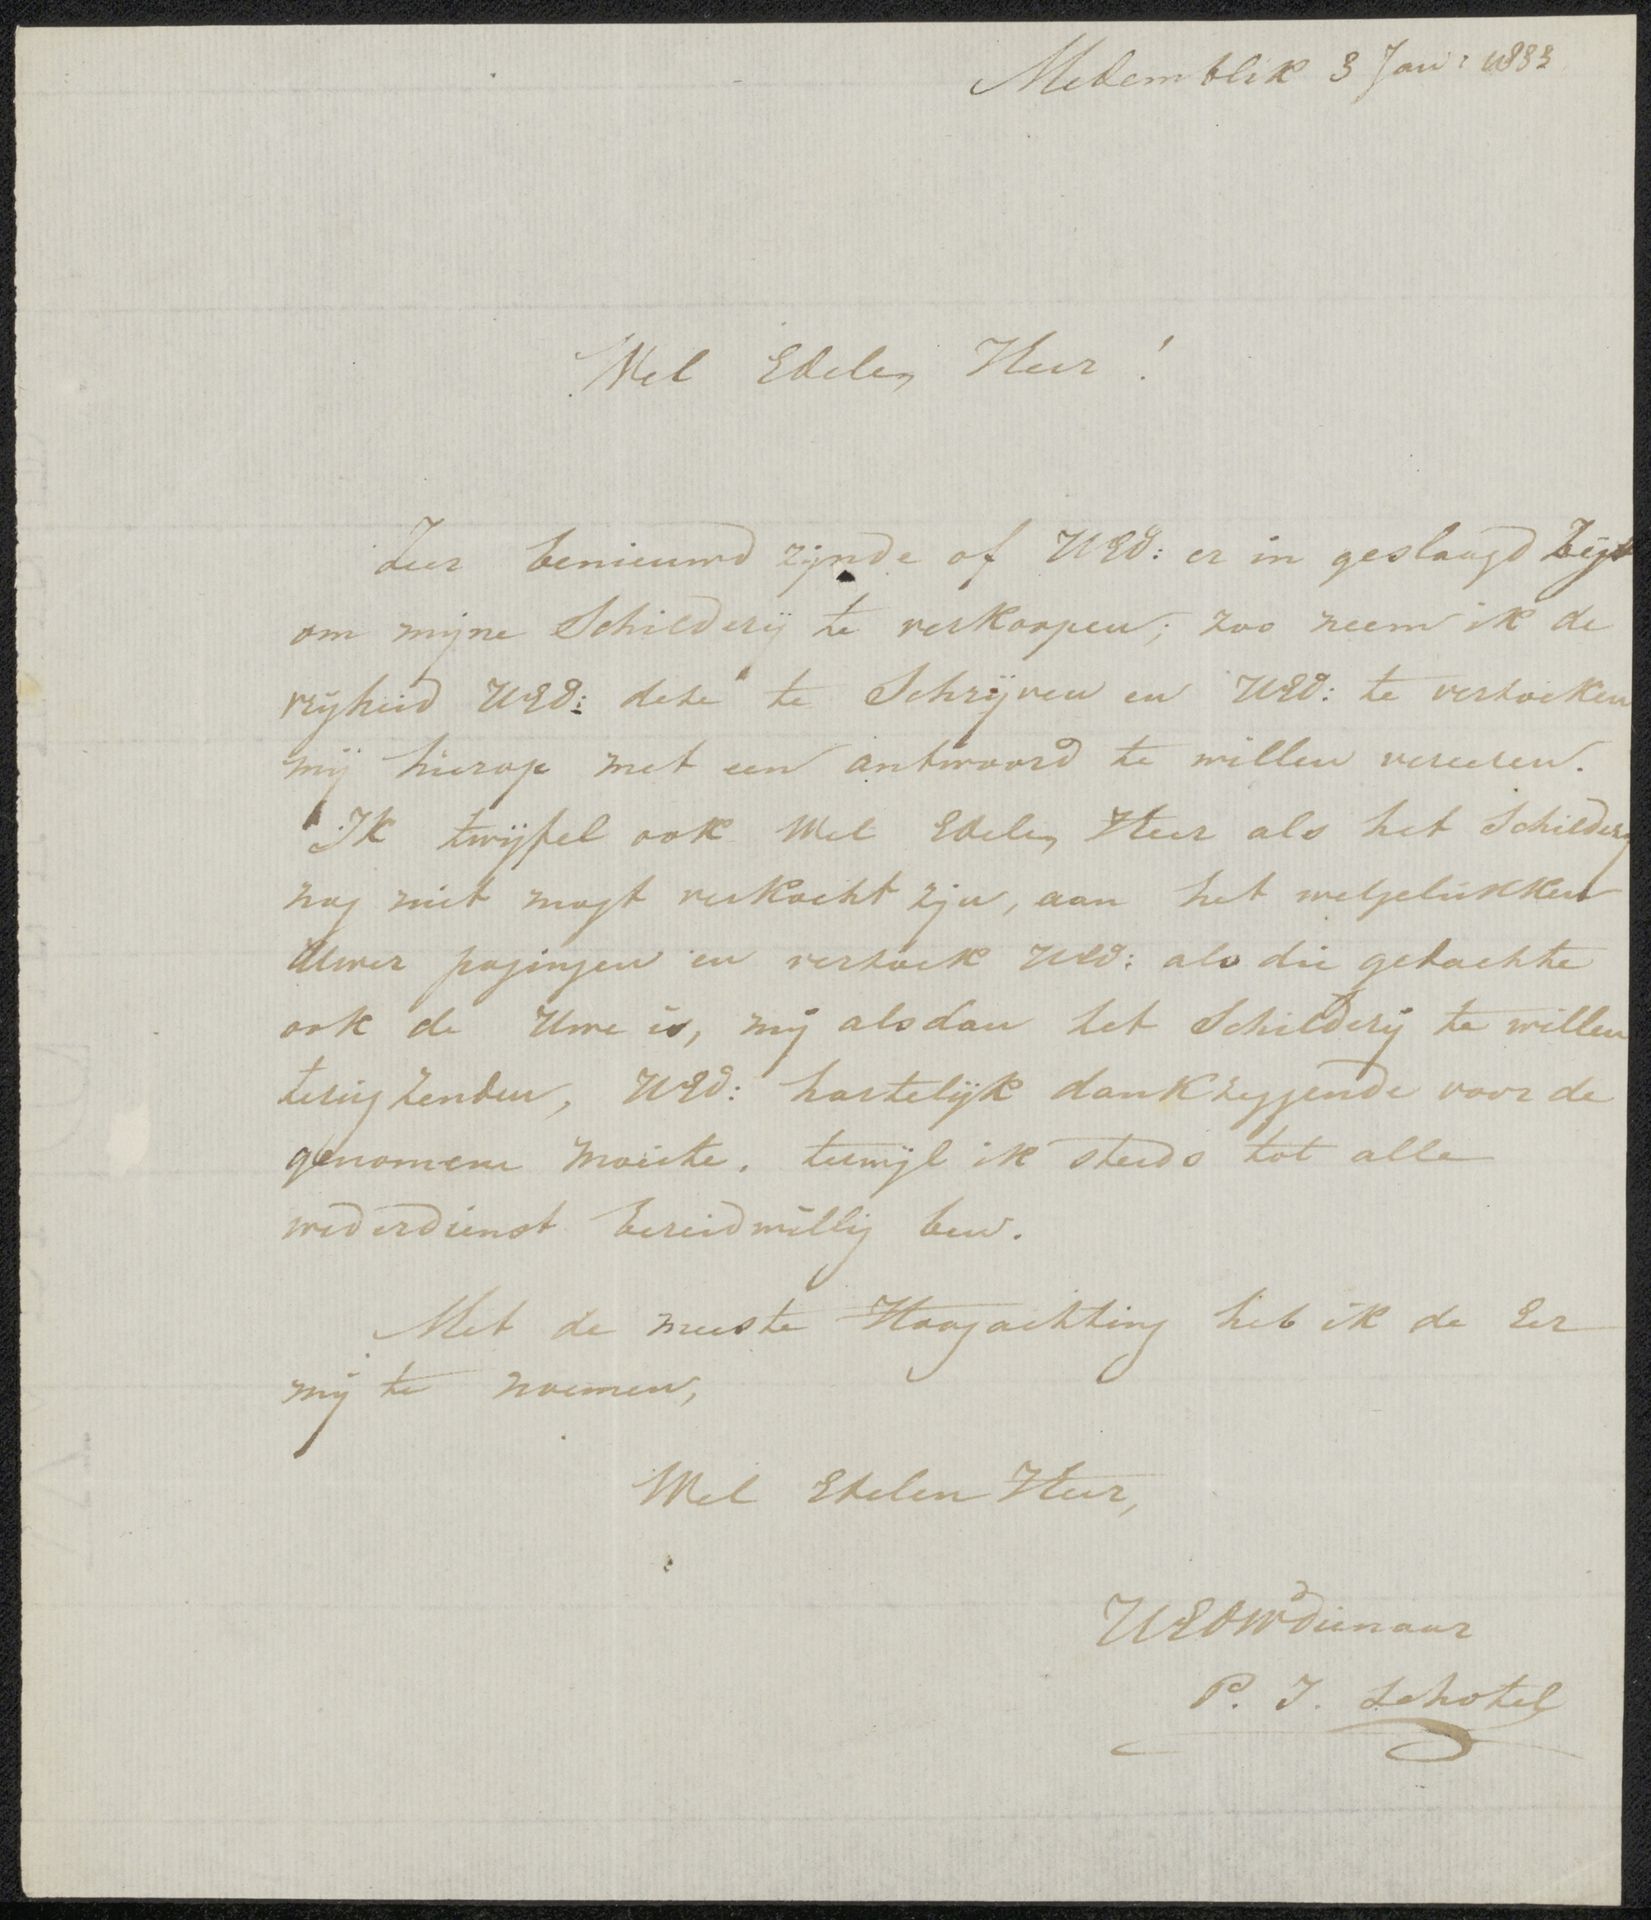 Medemblik 3 Jan: 1833
Wel Edelen Heer!
Zeer benieuwd zijnde of UEd: er in geslaagd zijt
om mijne Schilderij te verkoopen; zoo neem ik de
vrijheid UEd: deze te Schrijven en UEd: te verzoeken
mij hierop met een antwoord te willen vereeren.
Ik twijfel ook Wel Edelen Heer als het Schilderij
nog niet mogt verkocht zijn, aan het welgelukken
Uwer pogingen en verzoek UEd: als die gedachte
ook de Uwe is, mij alsdan het Schilderij te willen
terugzenden, UEd: hartelijk dankzeggende voor de
genomene moeite. terwijl ik steeds tot alle
wederdienst bereidwillig ben.
Met de meeste Hoogachting heb ik de Eer
mij te noemen,
Wel Edelen Heer,
UEDWdienaar
P. J. Schotel